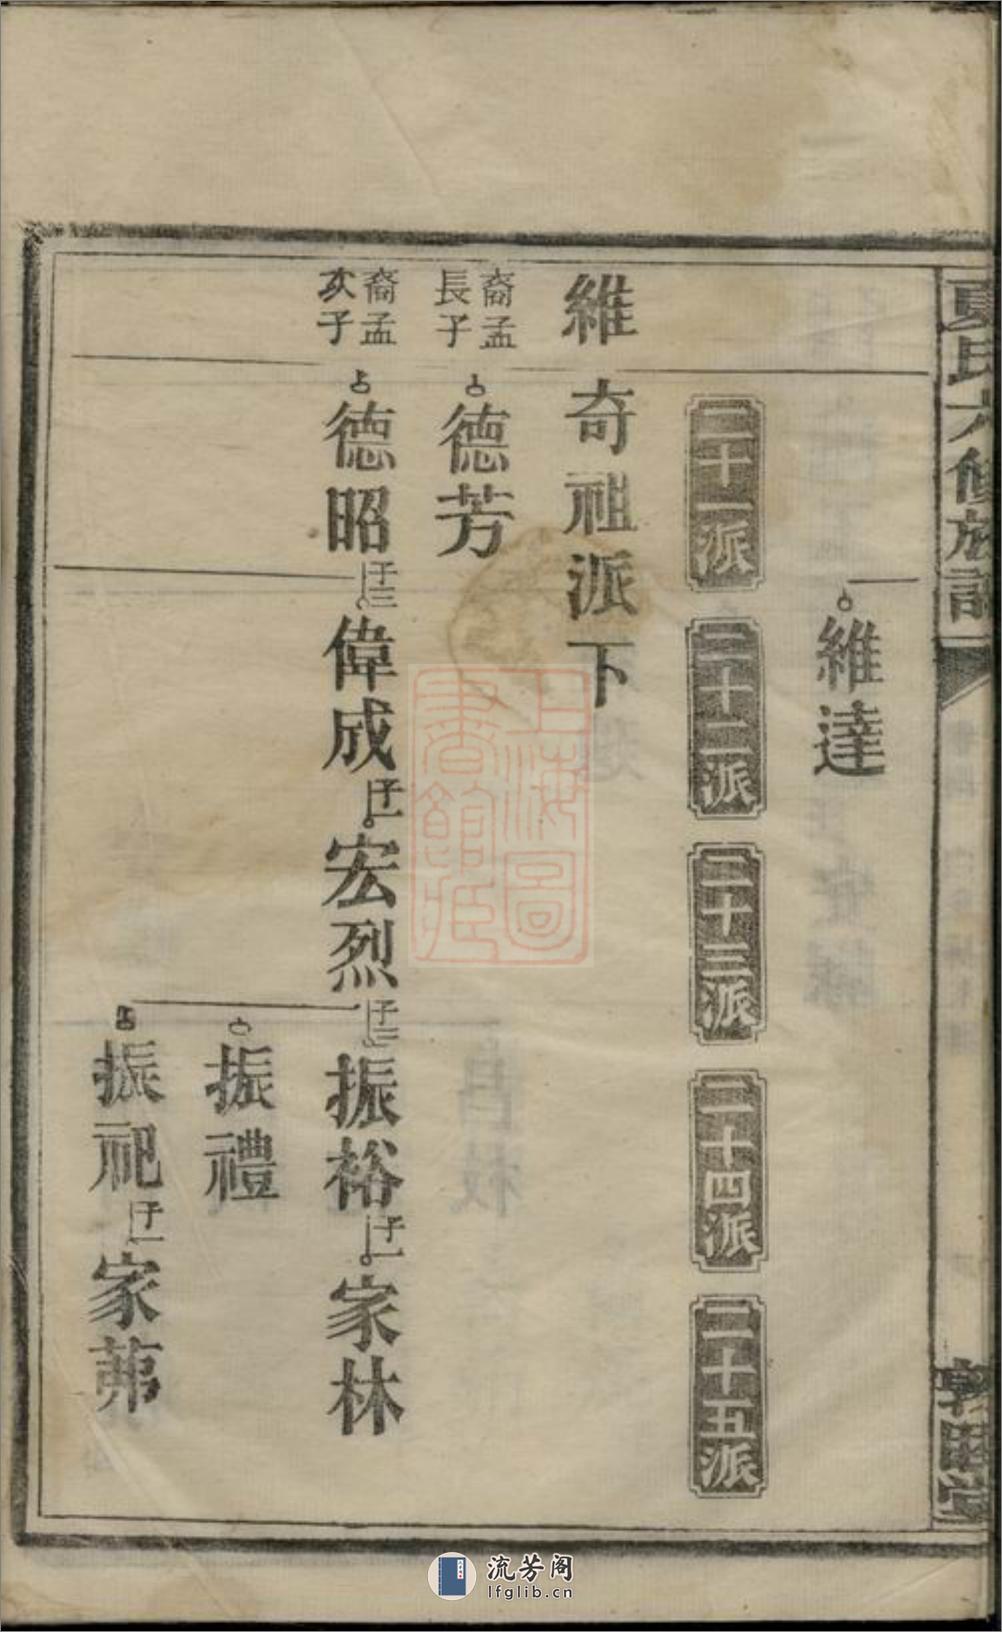 夏氏六修族譜
敦睦堂
維達
二十一派
二十二派
二十三派
二十四派
二十五派
維奇祖派下
裔孟長子
德芳
裔孟次子
德昭
子三
偉成
子二
宏烈
子三
振裕
子一
家林
振禮
振祀
子一
家茀
上海圖書館藏
流芳阁
lfglib.cn